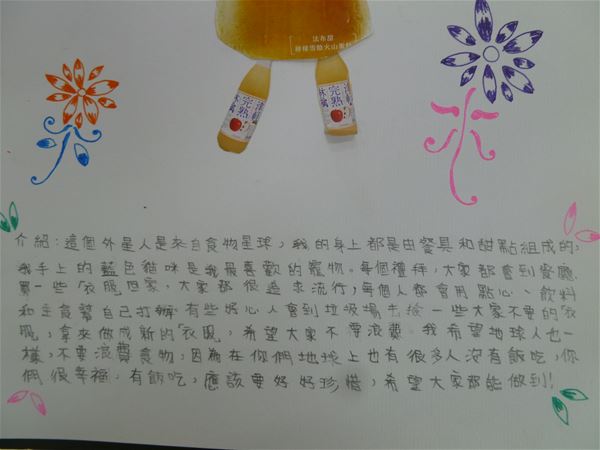 法布甜
完熟
林檎
完熟
林檎
介紹:這個外星人是來自食物星球,我的身上都是由餐具和甜點組成的,
我手上的藍色貓咪是我最喜歡的寵物。每個禮拜,大家都會到餐廳
買一些「衣服」回家,大家都很追求流行,每個人都會用點心、飲料
和主食幫自己打扮。有些好心人會到垃圾場去撿一些大家不要的「衣
服」,拿來做成新的「衣服」,希望大家不要浪費。我希望地球人也一
樣,不要浪費食物,因為在你們地球上也有很多人沒有飯吃,你
們很幸福,有飯吃,應該要好好珍惜,希望大家都能做到!